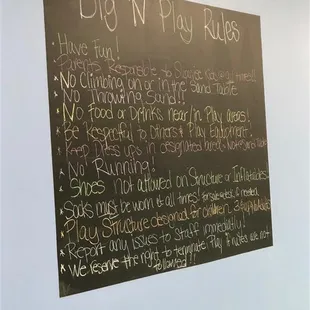 Dig 'N' Play Rules
* Have Fun!
* Parents Responsible to Supervise Kids @ all times!!
* No Climbing on or in the Sand Table
* No Throwing Sand!!
* No Food or Drinks near/in Play areas!
* Be Respectful to Others + Play Equipment!
* Keep Dress ups in designated area
* No Running!
* Shoes not allowed on Structure or Inflatables!
* Socks must be worn at all times! needed
* Play Structure designed for children 3
* Report any issues to Staff immediately!
* We reserve the right to terminate Play if rules are not
followed!!